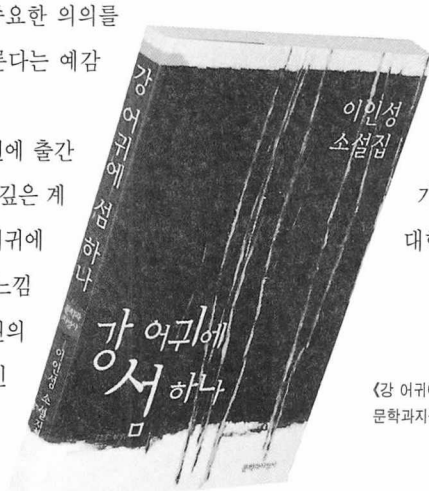 요한 의의를
다는 예감
에 출간
깊은 계
귀에
느낌
의
강 어귀에 섬 하나
이인성 소설집
이인성
소설집
강 어귀에
섬 하나
문학과지성사
대
《강 어귀
문학과지